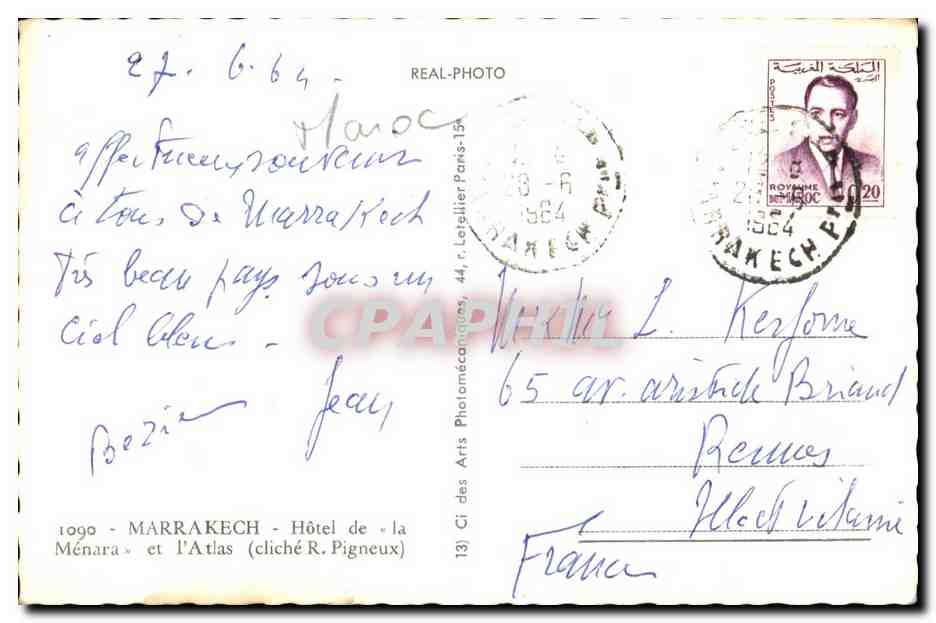 27.6.64.
REAL-PHOTO
Maroc
affectueux souvenir
à tous de Marrakech
Très beau pays sous un
ciel bleu.
Jean
1090 - MARRAKECH - Hôtel de « la
Ménara » et l'Atlas (cliché R. Pigneux)
13) Ci des Arts Photomécaniques, 44, r. Letellier Paris-15e
28-6
1964
MARRAKECH
المملكة المغربية
البريد
POSTES
ROYAUME
DU MAROC
0,20
28-6
1964
MARRAKECH
L. Kerforne
65 av. Aristide Briand
Rennes
Ille et Vilaine
France
CPAPHIL